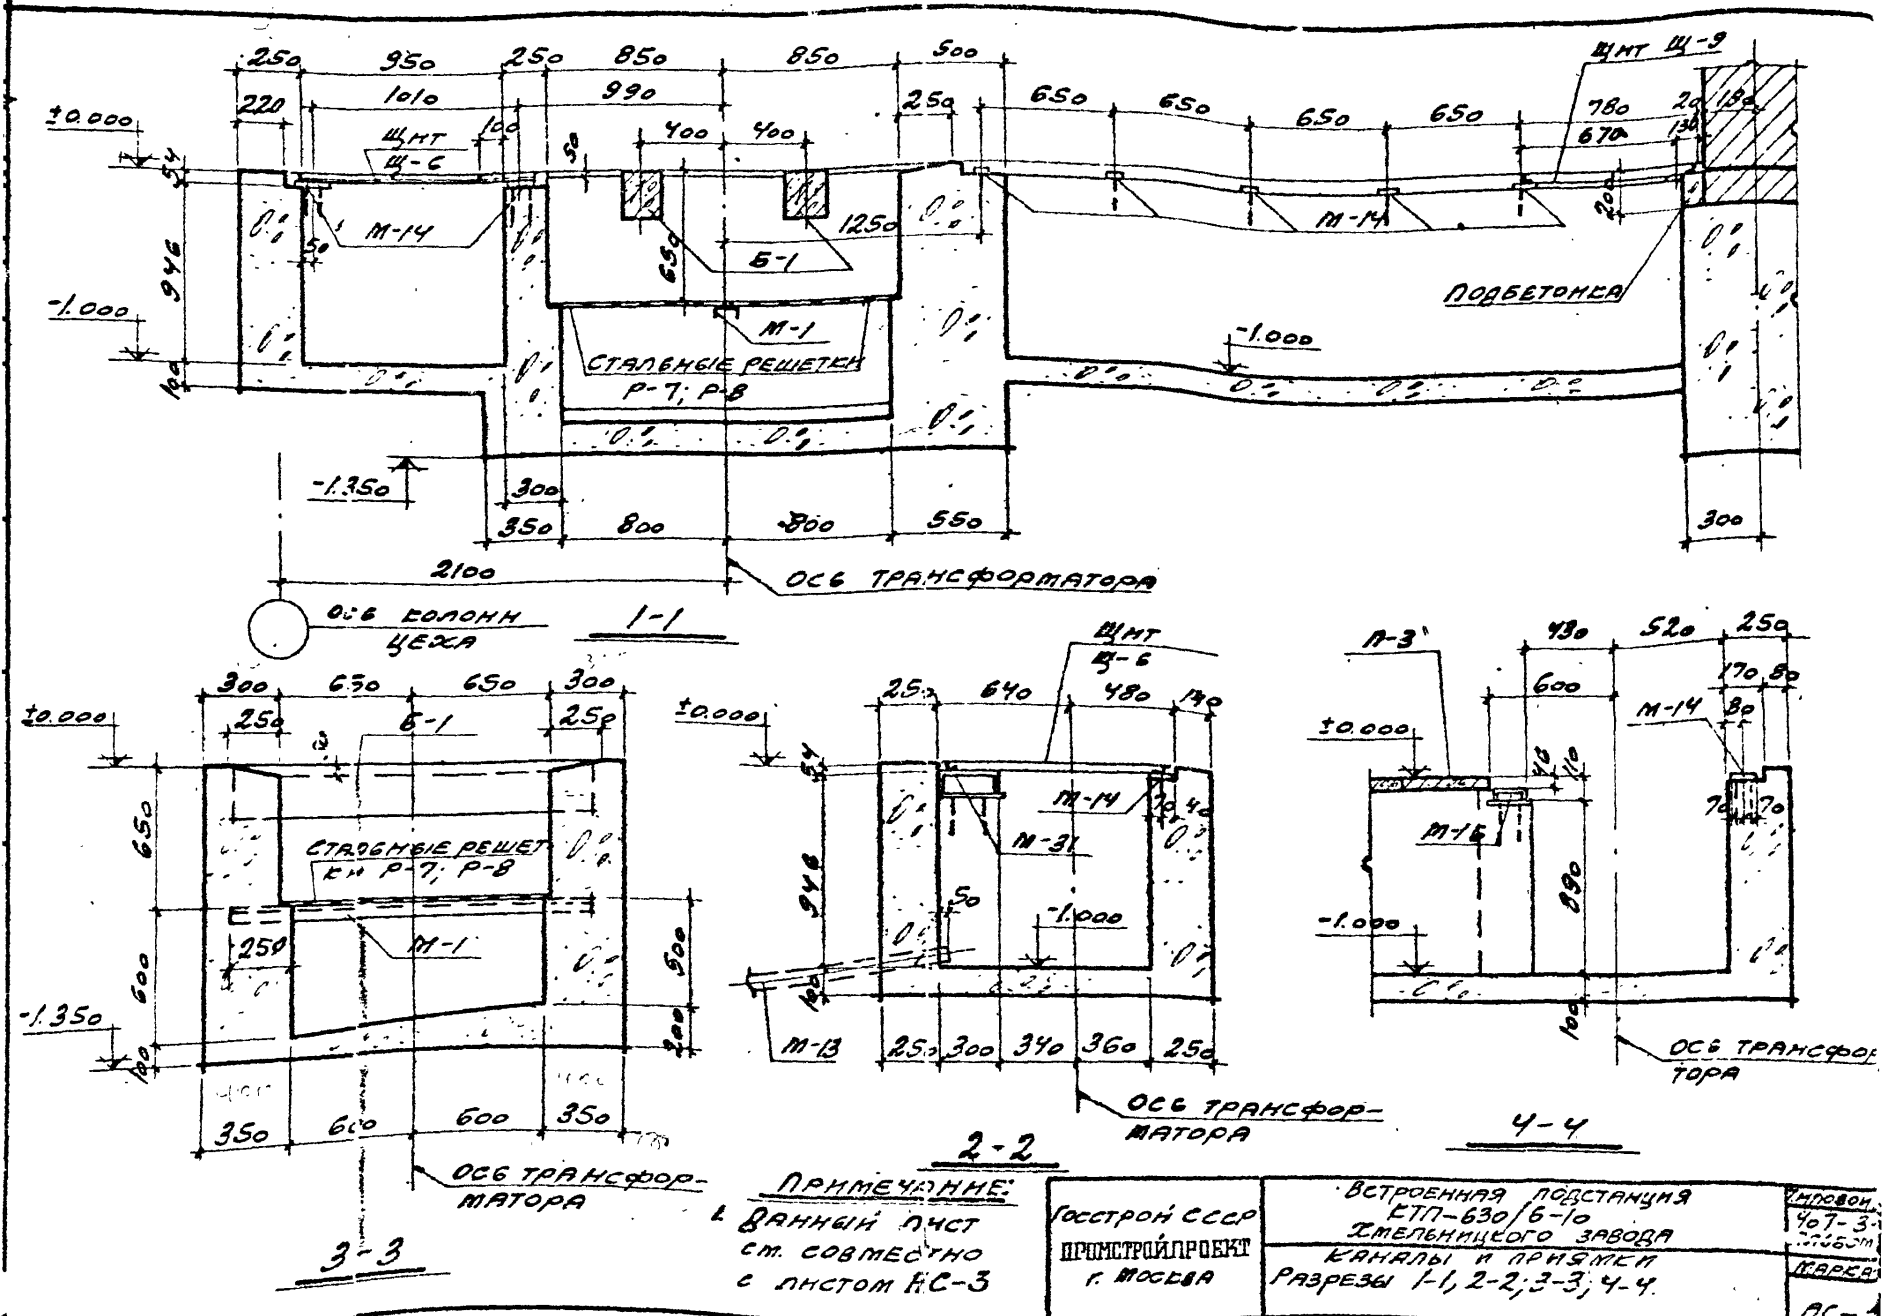 250 950 250 850 850 500
ЩИТ Щ-9
220 1010 990 250 650 650 650 650 780 20 130
±0.000
ЩИТ
Щ-6
100 50 400 400 670 130
54
946
100
50
М-14
650
1250
Б-1
М-14
200
ПОДБЕТОНКА
-1.000
М-1
СТАЛЬНЫЕ РЕШЕТКИ
Р-7; Р-8
-1.000
-1.350
300
350 800 800 550 300
2100
ОСЬ ТРАНСФОРМАТОРА
ОСЬ КОЛОНН
ЦЕХА
1-1
300 650 650 300
±0.000
250 Б-1 250
650
СТАЛЬНЫЕ РЕШЕТ
КИ Р-7; Р-8
250
М-1
600
500
-1.350
100
200
350 600 600 350
ОСЬ ТРАНСФОР-
МАТОРА
3-3
ЩИТ
Щ-6
250 640 480 140
±0.000
54
М-14
70 40
М-31
946
50
-1.000
100
М-13
250 300 340 360 250
ОСЬ ТРАНСФОР-
МАТОРА
2-2
П-3
430 520 250
600
170 80
М-14
80
±0.000
110
70 70
М-16
890
-1.000
100
ОСЬ ТРАНСФОР
ТОРА
4-4
ПРИМЕЧАНИЕ:
1. ДАННЫЙ ЛИСТ
СМ. СОВМЕСТНО
С ЛИСТОМ АС-3
ГОССТРОЙ СССР
ПРОМСТРОЙПРОЕКТ
Г. МОСКВА
ВСТРОЕННАЯ ПОДСТАНЦИЯ
КТП-630/6-10
ХМЕЛЬНИЦКОГО ЗАВОДА
КАНАЛЫ И ПРИЯМКИ
РАЗРЕЗЫ 1-1, 2-2; 3-3; 4-4.
ТИПОВОЙ
407-3-
АЛЬБОМ
МАРКА
АС-